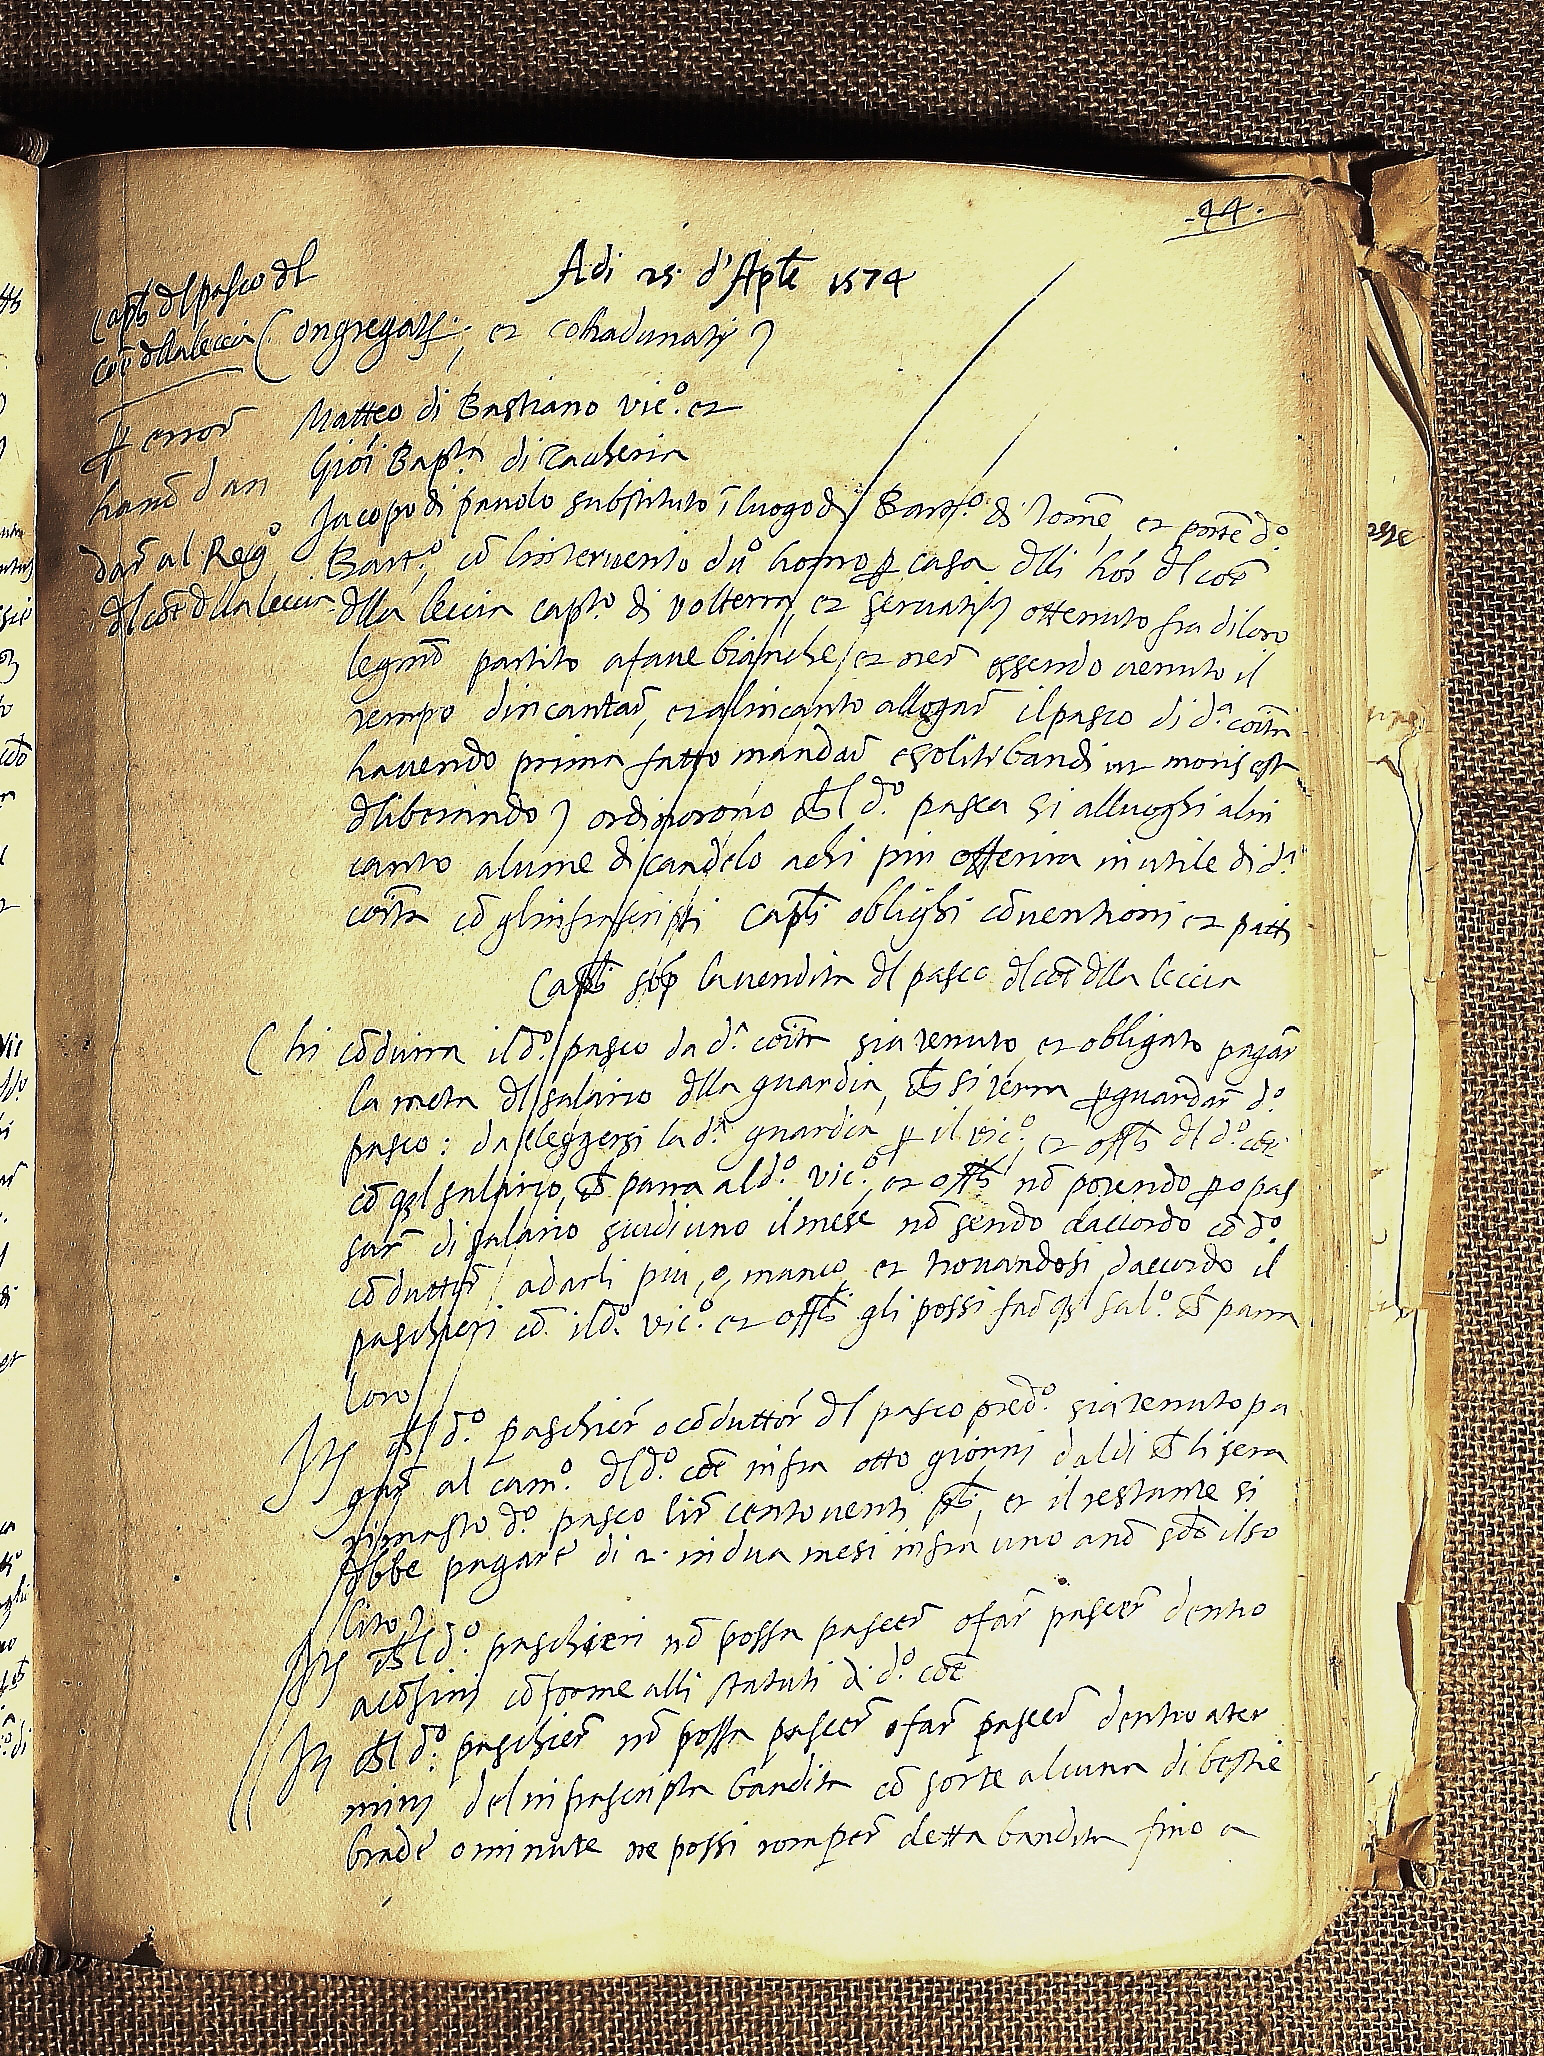 -44-
Adi 25 d'Ap̄le 1574
cap̄li dl pasco dl
coē dlla leccia
Congregati et cohadunati
p̄ erroř
Matteo di Bastiano vic.º et
Giōi Bap̄ta di Zacheria
hanō dari
Jacopo di pavolo substituto ī luogo di Bart.º di Tomē et p̄nte d.º
dař al Reg.º
Bart.º cō lintervento du.º homo p̄ casa dlli hōi dl coē
dl coē dlla leccia
dlla leccia cap.to di volterra, et servatis ottenuto fra di loro
legm̄o partito a fave bianche et neř essendo venuto il
tempo dincantař, et alincanto allogař il pasco di d.ª coīta
havendo prima fatto mandař e soliti bandi ut moris est
dliberando ordinorono ch̄l d.º pasco si alluoghi alin
canto a lume di candelo a chi piu offerira in utile di d.ª
coīta cō glinfrascripti cap̄li oblighi cōventioni et patti
Cap̄li sop̄ la vendita dl pasco dl coē dlla leccia
Chi cōdurra il d.º pasco da d.ª coīta sia tenuto et obligato pagař
la meta dl salario dlla guardia, ch̄ si terra p̄ guardař d.º
pasco: da eleggersi la d.ª guardia p̄ il vic.º et offli dl d.º coē
cō q̄l salario, ch̄ parra al d.º vic.º et offli nō potendo p̄o pas
sař di salario scudi uno il mese nō sendo daccordo cō d.º
cōduttoř adarli piu, o, manco, et trovandosi daccordo il
paschieri cō il d.º vic.º et offli gli possi far q̄l sal.º ch̄ parra
loro
Itē ch̄l d.º paschieř o cōduttoř dl pasco pred.º sia tenuto pa
gař al cam.º dl d.º coē infra otto giorni dal di ch̄ li sera
rimasto d.º pasco liř cento venti p̄li, et il restante si
dbbe pagare di 2 in dua mesi infra uno anō s̄do il so
lito
Itē ch̄l d.º paschieri nō possa pasceř o fař pasceř dentro
a cōfini cōforme alli statuti di d.º coē
Itē ch̄l d.º paschieř nō possa pasceř o fař pasceř dentro a ter
mini del infrascripta bandita cō sorte alcuna di bestie
brade o minute ne possi rompeř detta bandita fino a